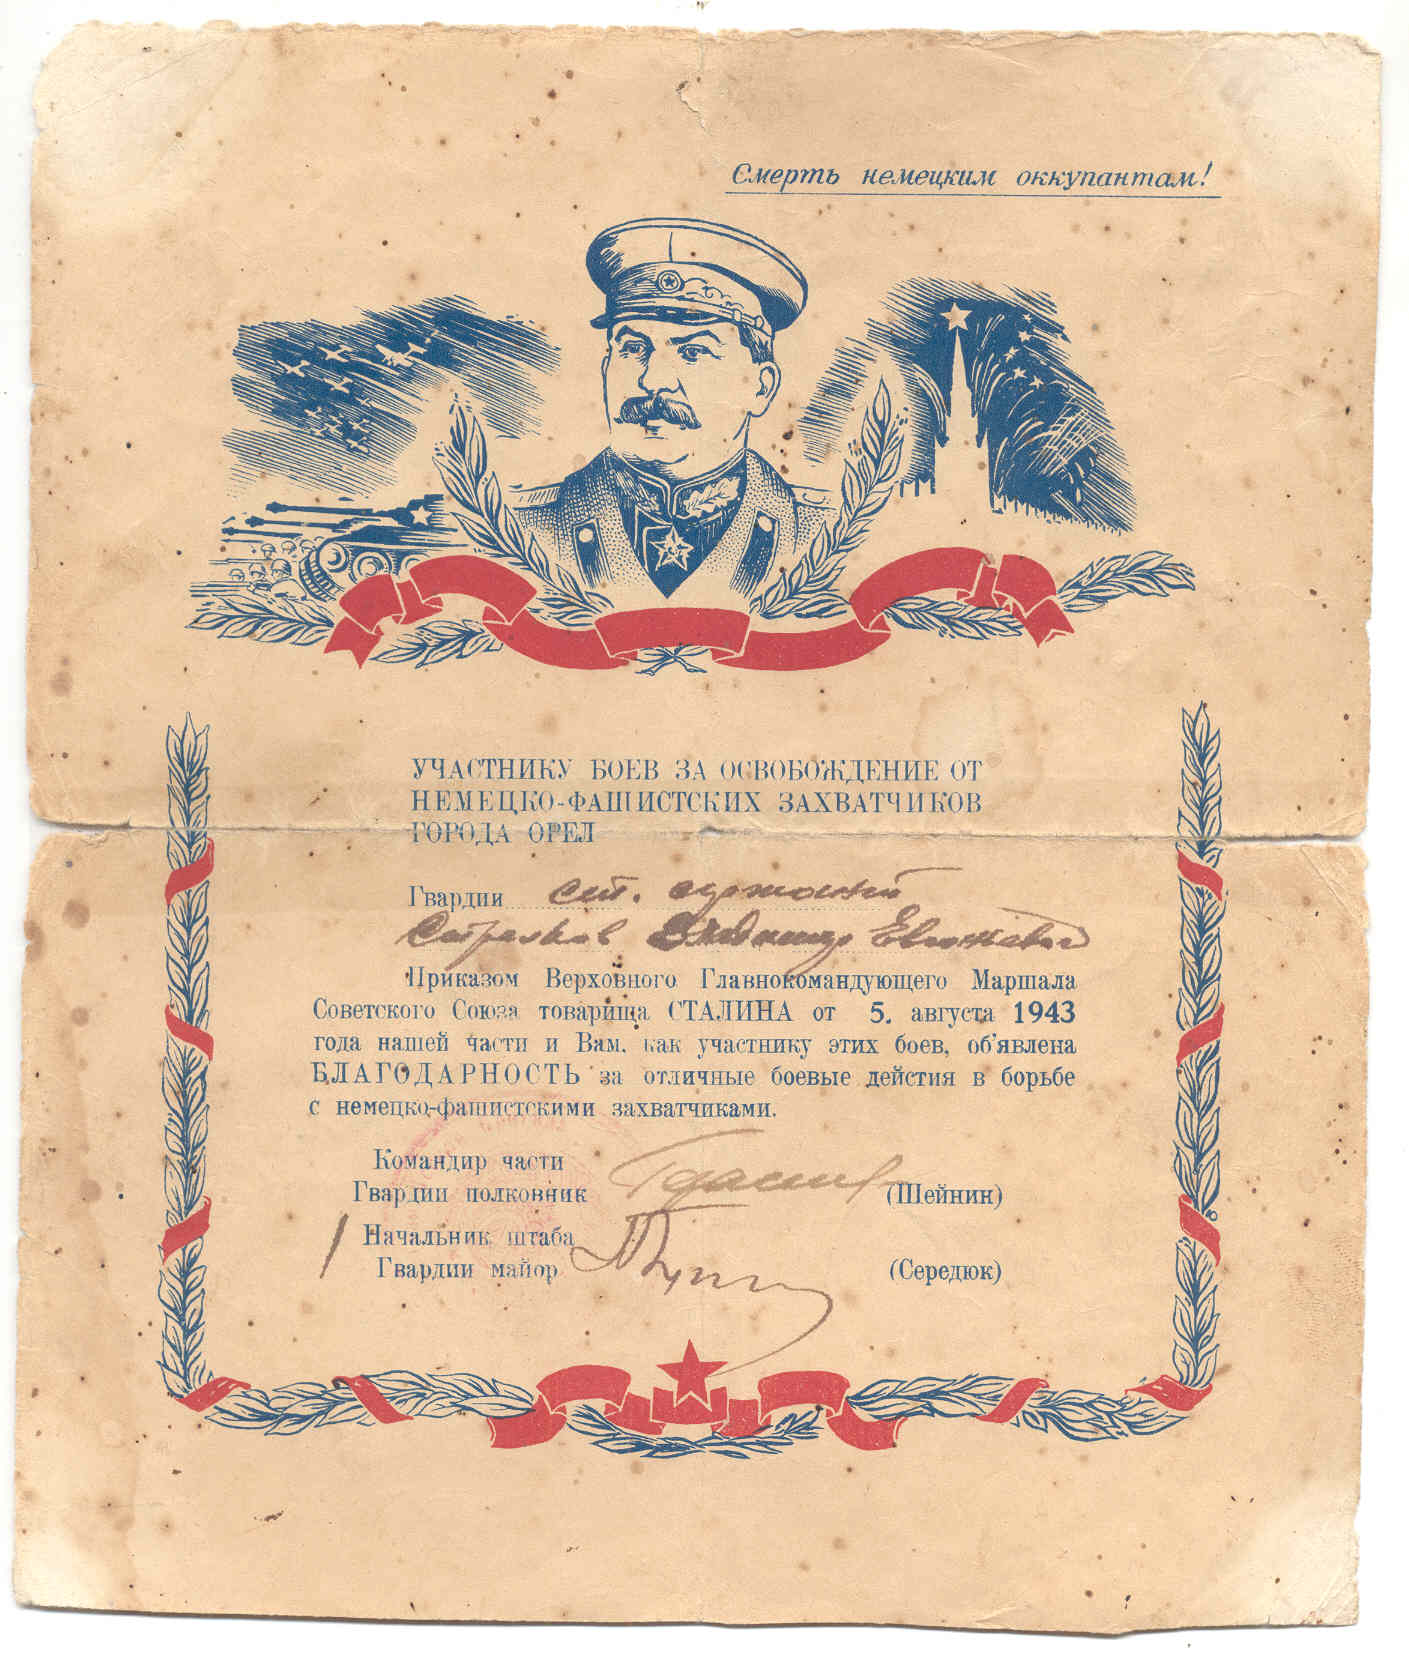 Смерть немецким оккупантам!
УЧАСТНИКУ БОЕВ ЗА ОСВОБОЖДЕНИЕ ОТ
НЕМЕЦКО-ФАШИСТСКИХ ЗАХВАТЧИКОВ
ГОРОДА ОРЕЛ
Гвардии ст. сержант
Стрелков Владимир Евгеньевич
Приказом Верховного Главнокомандующего Маршала
Советского Союза товарища СТАЛИНА от 5. августа 1943
года нашей части и Вам, как участнику этих боев, об'явлена
БЛАГОДАРНОСТЬ за отличные боевые дейстия в борьбе
с немецко-фашистскими захватчиками.
Командир части
Гвардии полковник (Шейнин)
Начальник штаба
Гвардии майор (Середюк)